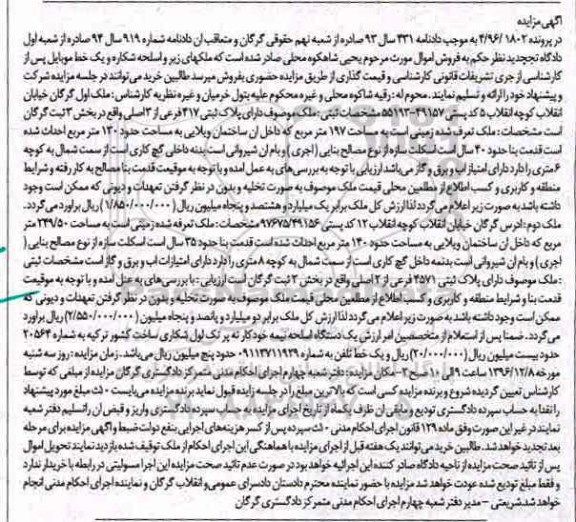 آگهی مزایده
در پرونده ۱۸۰۲ /۴/۹۶ به موجب دادنامه ۴۳۱ سال ۹۳ صادره از شعبه نهم حقوقی گرگان و متعاقب آن دادنامه شماره ۹۱۹ سال ۹۴ صادره از شعبه اول
دادگاه تجدید نظر حکم به فروش اموال مورث مرحوم یحیی شاهکوه محلی صادر شده است که ملکهای زیر و اسلحه شکاره و یک خط موبایل پس از
کارشناسی از جری تشریفات قانونی کارشناسی و قیمت گذاری از طریق مزایده حضوری بفروش میرسد طالبین خرید می توانند در جلسه مزایده شرکت
و پیشنهاد خود را ارائه و تسلیم نمایند. محوم له : رقیه شاکوه محلی و غیره محکوم علیه بتول خرمیان و غیره نظریه کارشناس : ملک اول گرگان خیابان
انقلاب کوچه انقلاب ۵ کد پستی ۳۹۱۵۷-۵۵۱۹۳ مشخصات ثبتی : ملک موصوف دارای پلاک ثبتی ۴۱۷ فرعی از ۳ اصلی واقع در بخش ۳ ثبت گرگان
است مشخصات : ملک تعرفه شده زمینی است به مساحت ۱۹۷ متر مربع که داخل آن ساختمان ویلایی به مساحت حدود ۱۳۰ متر مربع احداث شده
است قدمت بنا حدود ۴۰ سال است اسکلت سازه از نوع مصالح بنایی (آجری) و بام آن شیروانی است بدنه داخلی گچ کاری است از سمت شمال به کوچه
۶ متری را دارد دارای امتیاز آب و برق و گاز می باشد ارزیابی با توجه به بررسی های به عمل آمده و با توجه به موقعیت قدمت بنا مصالح به کار رفته و شرایط
منطقه و کاربری و کسب اطلاع از مطلعین محلی قیمت ملک موصوف به صورت تخلیه و بدون در نظر گرفتن تعهدات و دیونی که ممکن است وجود
داشته باشد به صورت زیر اعلام می گردد لذا ارزش کل ملک برابر یک میلیارد و هشتصد و پنجاه میلیون ریال (۱/۸۵۰/۰۰۰/۰۰۰) ریال برآورد می گردد.
ملک دوم : آدرس گرگان خیابان انقلاب کوچه انقلاب ۱۲ کد پستی ۹۷۶۷۵/۴۹۱۵۶ مشخصات : ملک تعرفه شده زمینی است به مساحت ۲۴۹/۵۰ متر
مربع که داخل آن ساختمان ویلایی به مساحت حدود ۱۴۰ متر مربع احداث گرده است قدمت بنا حدود ۳۵ سال است اسکلت سازه از نوع مصالح بنایی (
آجری) و بام آن شیروانی است بدنه داخل گچ کاری است از سمت شمال به کوچه ۸ متری را دارد دارای امتیازات آب و برق و گاز است مشخصات ثبتی
: ملک موصوف دارای پلاک ثبتی ۴۵۷۱ فرعی از ۲ اصلی واقع در بخش ۲ ثبت گرگان است ارزیابی : با بررسی های به عمل آمده و با توجه به موقعیت
قدمت بنا و شرایط منطقه و کاربری و کسب اطلاع از مطلعین محلی قیمت ملک موصوف به صورت تخلیه و بدون در نظر گرفتن تعهدات و دیونی که
ممکن است وجود داشته باشد به صورت زیر اعلام می گردد لذا ارزش کل ملک برابر دو میلیارد و پانصد و پنجاه میلیون (۲/۵۵۰/۰۰۰/۰۰۰) ریال برآورد
می گردد. ضمنا پس از استعلام از متخصصین امر ارزش یک دستگاه اسلحه نیمه خودکار ته پر تک لول شکاری ساخت کشور ترکیه به شماره ۲۰۵۶۴
حدود بیست میلیون ریال (۲۰/۰۰۰/۰۰۰) ریال و یک خط تلفن به شماره ۰۹۱۱۳۷۱۱۹۳۹ حدود پنج میلیون ریال می باشد. زمان مزایده : روز سه شنبه
مورخه ۱۳۹۶/۱۲/۸ ساعت ۹ الی ۱۰ صبح ۳- مکان مزایده : دفتر شعبه چهارم اجرای احکام مدنی متمرکز دادگستری گرگان مزایده از مبلغی که توسط
کارشناس تعیین گردیده شروع و برنده مزایده کسی است که بالاترین مبلغ را در جلسه زایده قبول نماید برنده مزایده می بایست ۱۰٪ مبلغ مورد پیشنهاد
را نقدا به حساب سپرده دادگستری تودیع و مابقی آن ظرف یکماه از تاریخ اجرای مزایده به حساب سپرده دادگستری واریز و قبض آن را تسلیم دفتر شعبه
نمایند در غیر این صورت وفق ماده ۱۲۹ قانون اجرای احکام مدنی ۱۰٪ سپرده پس از کسر هزینه های اجرایی بنفع دولت ضبط و آگهی مزایده برای مرحله
بعد تجدید خواهد شد. طالبین خرید می توانند یک هفته قبل از اجرای مزایده با هماهنگی این اجرای احکام از ملک توقیف شده بازدید نمایند تحویل اموال
پس از تائید صحت مزایده از ناحیه دادگاه صادر کننده این اجرائیه خواهد بود در صورت عدم تائید صحت مزایده این اجرا مسولیتی در رابطه با خریدار ندارد
و فقط مبلغ تودیع شده عودت خواهد شد مزایده با حضور نماینده محترم دادستان دادسرای عمومی و انقلاب گرگان و نماینده اجرای احکام مدنی انجام
خواهد شد شریعتی - مدیر دفتر شعبه چهارم اجرای احکام مدنی متمرکز دادگستری گرگان